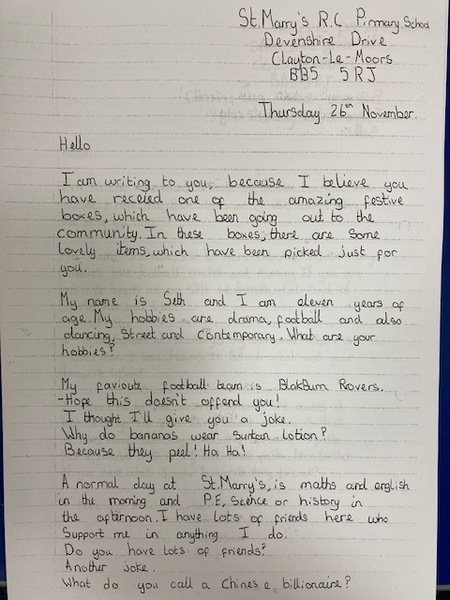 St.Marry's R.C Pirmary School
Devenshire Drive
Clayton-Le-Moors
BB5 5RJ
Thursday 26th November.
Hello
I am writing to you, because I believe you
have receied one of the amazing festive
boxes, which have been going out to the
community. In these boxes, there are some
lovely items, which have been picked just for
you.
My name is Seth and I am eleven years of
age. My hobbies are drama, football and also
dancing, Street and Contemporary. What are your
hobbies?
My favioute football team is BlakBurn Rovers.
-Hope this doesn't offend you!
I thought I'll give you a joke.
Why do bananas wear suntan lotion?
Because they peel! Ha Ha!
A normal day at St.Marry's, is maths and english
in the morning and P.E, Science or history in
the afternoon. I have lots of friends here who
Support me in anything I do.
Do you have lots of friends?
Another joke.
What do you call a Chines e billionaire?